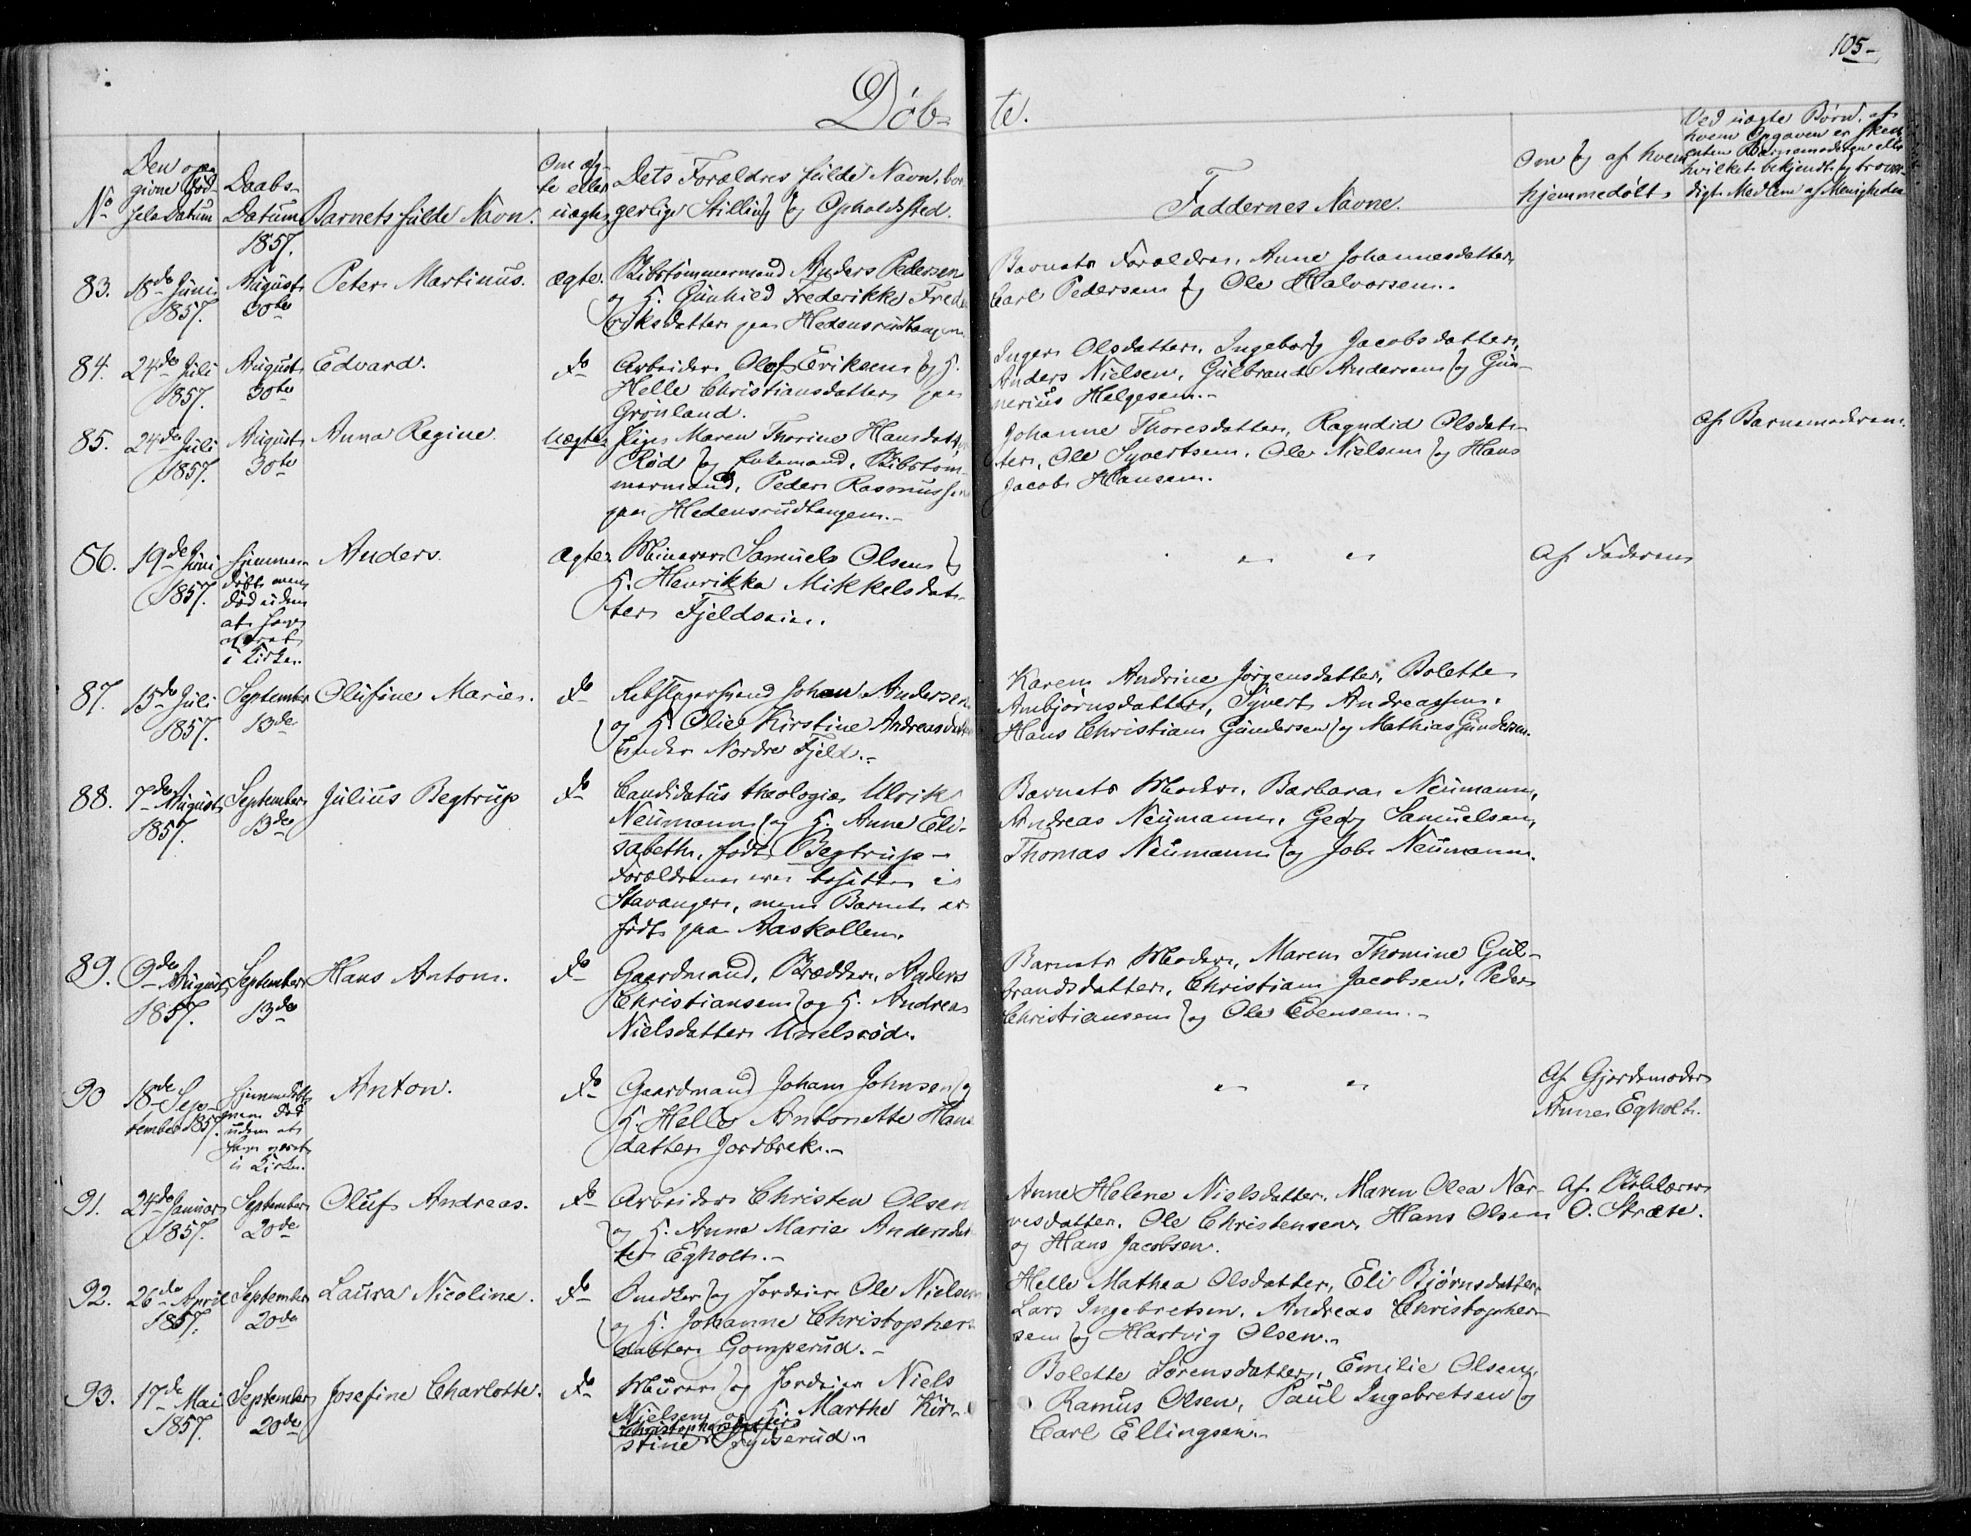 105-
Døb-te.
No
Den opgivne Fødselsdatum
Daabs-Datum
Barnets fulde Navn.
Om ægte eller uægte
Dets Forældres fulde Navn, borgerlige Stilling og Opholdssted.
Faddernes Navne.
Om og af hvem hjemmedøbt
Ved uægte Børn, af hvem Opgaven er skeet, enten Barnemoderen eller hvilket bekjendt og troværdigt Medlem af Menigheden
1857.
83. 18de Juni 1857. August 30te Peter Martinus. ægte. Skibstømmermand Anders Pedersen
og H. Gunhild Frederikke Frederiksdatter paa Hedensrudtangen
Barnets Forældre, Anne Johannesdatter,
Carl Pedersen og Ole Halvorsen.
84. 24de Juli 1857. August 30te Edvard. do Arbeider Olaf Eriksen og H.
Helle Christiansdatter paa
Grønland.
Inger Olsdatter, Ingeborg Jacobsdatter,
Anders Nielsen, Gulbrand Andersen og Gunnerius Helgesen.-
85. 24de Juli 1857. August 30te Anna Regine. Uægte Pige Maren Thorine Hansdatter
Rød og Enkemand, Skibstømmermand, Peder Rasmussen
paa Hedensrudtangen.-
Johanne Thoresdatter, Ragndid Olsdatter, Ole Syvertsen, Ole Nielsen og Hans
Jacob Hansen.
Af Barnemoderen.
86. 19de Juni 1857. Hjemmedøbt men død uden at have været i Kirken. Anders. ægte. Minerer Samuel Olsen og
H. Henrikka Mikkelsdatter Fjeldseie.
" "
Af Faderen
87. 15de Juli 1857. September 13de Olufine Marie. do Rebslagersvend Johan Andersen
og H. Olie Kirstine Andreasdatter
under Nordre Fjeld.-
Karen Andrine Jørgensdatter, Bolette
Ambjørnsdatter, Syvert Andreassen,
Hans Christian Gundersen og Mathias Gundersen.
88. 7de August 1857. September 13de Julius Begtrup do Candidatus theologiæ Ulrik
Neumann og H. Anne Elisabeth, født Begtrup -
Forældrene ere bosatte i
Stavanger, men Barnet er
født paa Aaskollen.
Barnets Moder, Barbara Neumann,
Andreas Neumann, Georg Samuelsen,
Thomas Neumann og Job Neumann.
89. 9de August 1857. September 13de Hans Anton. do Gaardmand, Anders
Christiansen og H. Andrea
Nielsdatter Unelsrød.
Barnets Moder, Maren Thomine Gulbrandsdatter, Christian Jacobsen, Peder
Christiansen og Ole Evensen.-
90 18de September 1857. Hjemmedøbt men død uden at have været i Kirken. Anton. do Gaardmand Johan Johnsen og
H. Helle Antonette Hansdatter Jordbrek.-
" "
Af Gjordemoder
Anne Egholt.
91. 24de Januar 1857. September 20de Oluf Andreas. do Arbeider Christen Olsen
og H. Anne Marie Andersdatter Egholt.-
Anne Helene Nielsdatter, Maren Olea Narvesdatter, Ole Christensen, Hans Olsen
og Hans Jacobsen.
Af Skolelærer
O. Stræte.
92. 26de April 1857. September 20de Laura Nicoline. do Snedker og Jordeier Ole Nielsen
og H. Johanne Christophersdatter Gomperud.-
Helle Mathea Olsdatter, Eli Bjørnsdatter,
Lars Ingebretsen, Andreas Christophersen og Hartvig Olsen.-
93. 17de Mai 1857. September 20de Josefine Charlotte. do Murer og Jordeier Niels
Nielsen og H. Marthe Kirstine Christophersdatter
Bolette Sørensdatter, Emilie Olsen,
Ramus Olsen, Paul Ingebretsen og
Carl Ellingsen.-